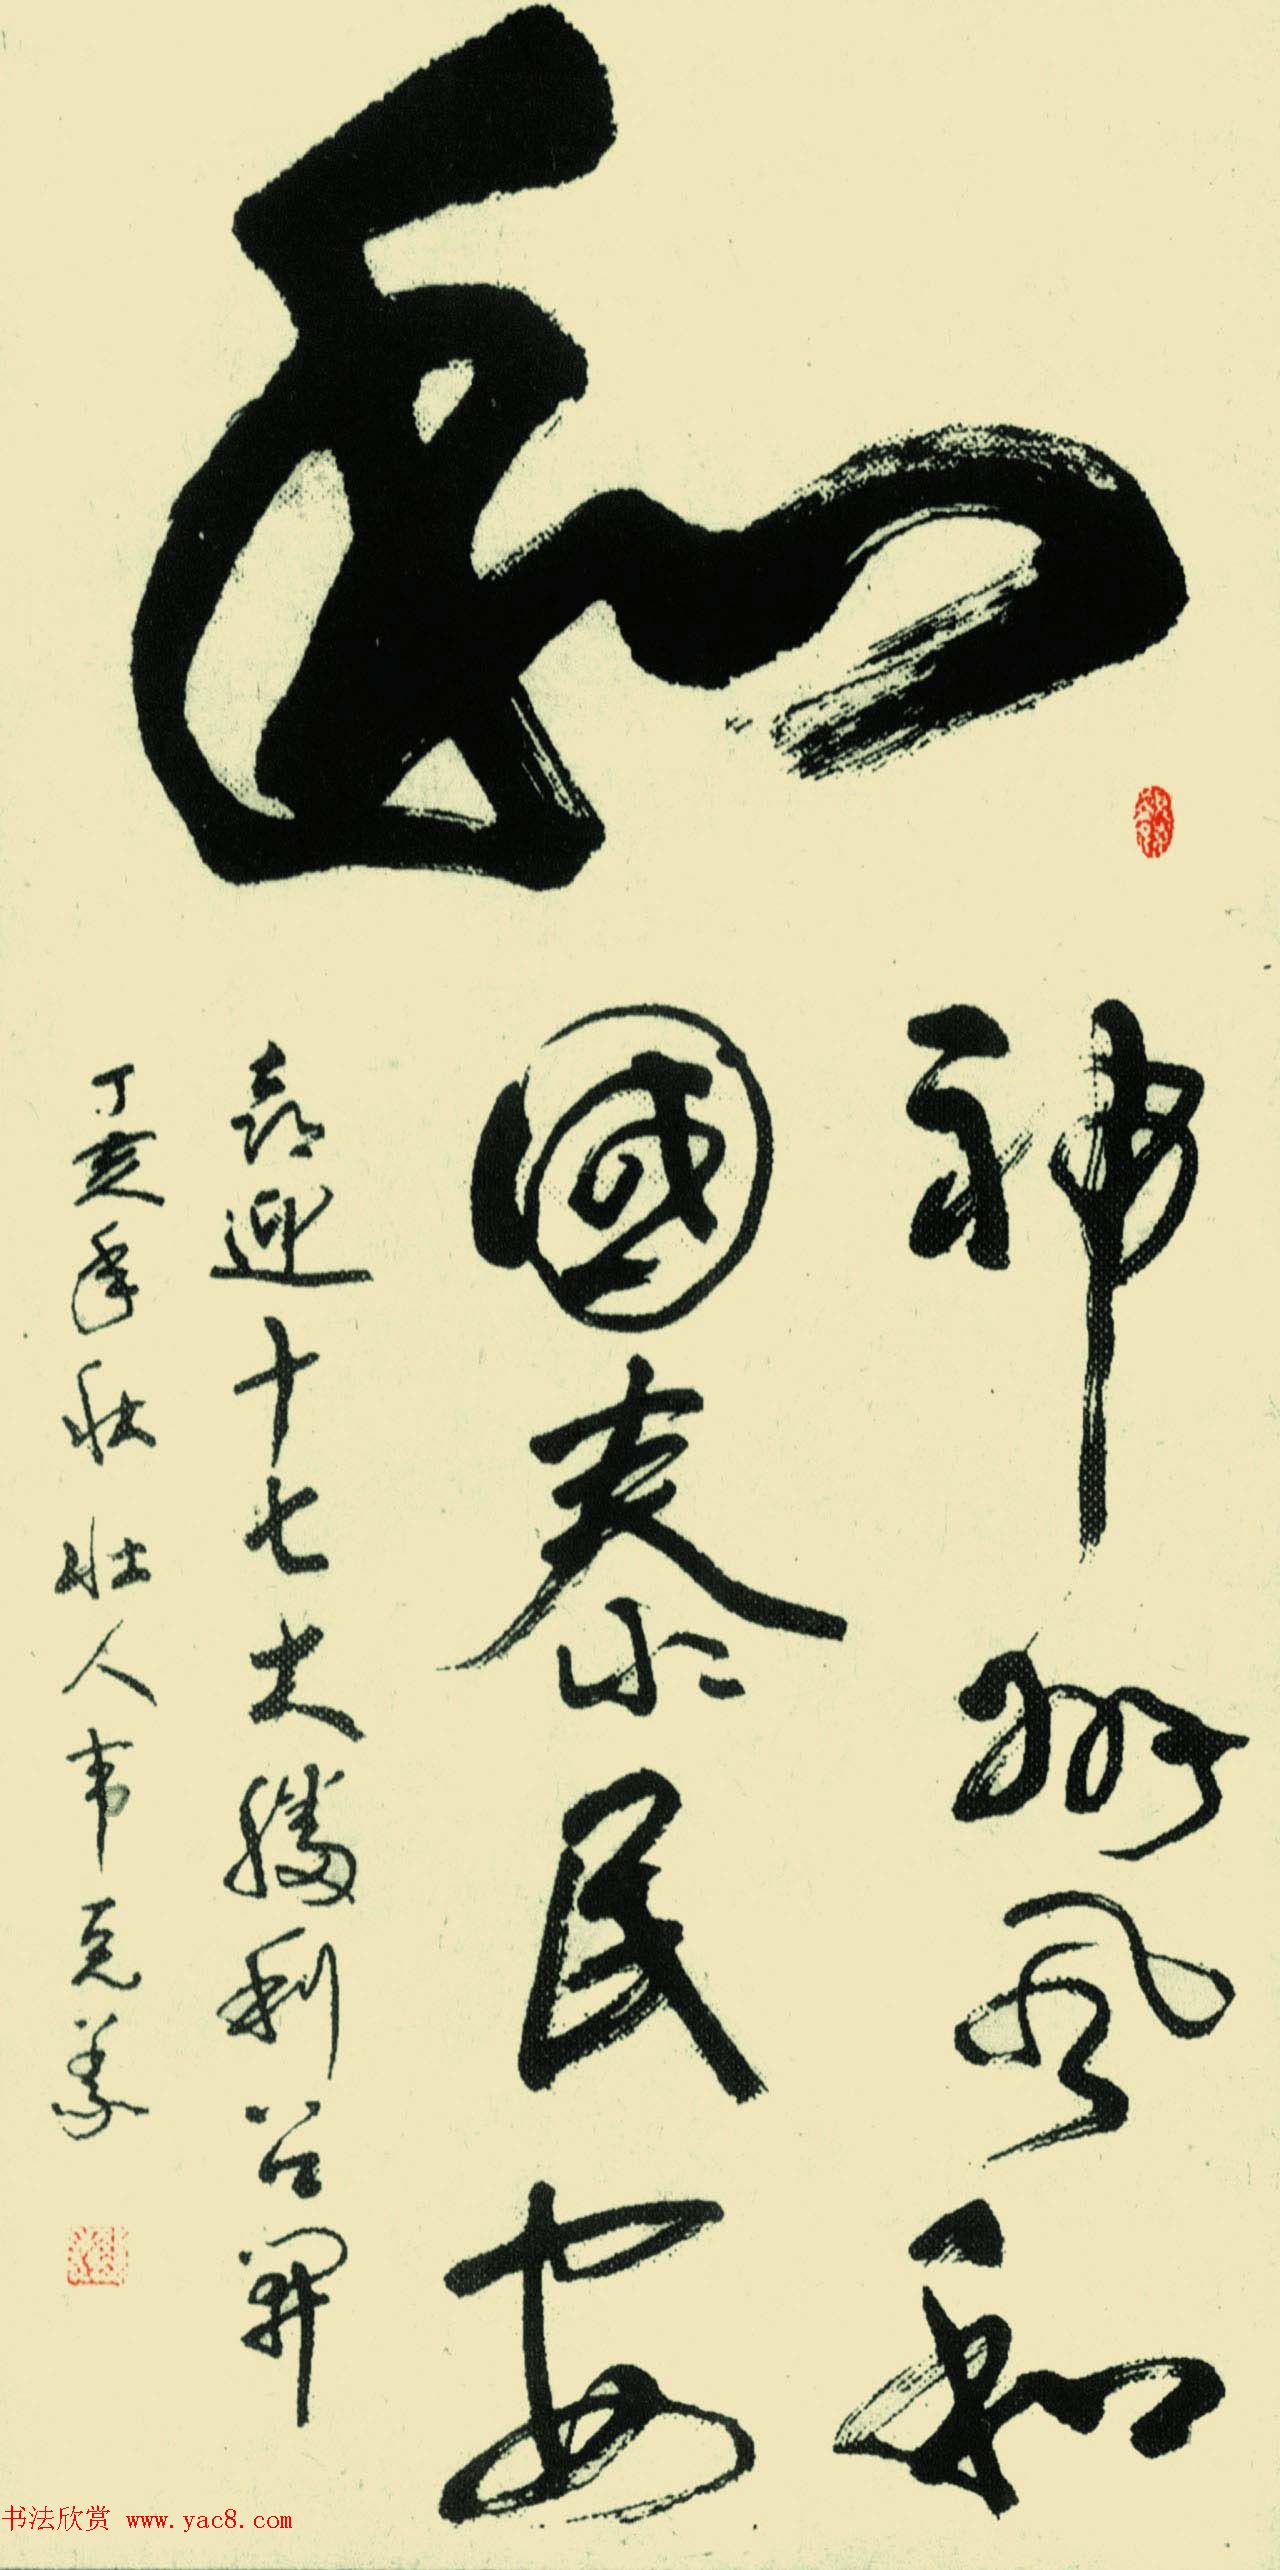 和
神州风和
國泰民安
喜迎十七大勝利召開
丁亥年秋壮人韦克义
书法欣赏 www.yac8.com